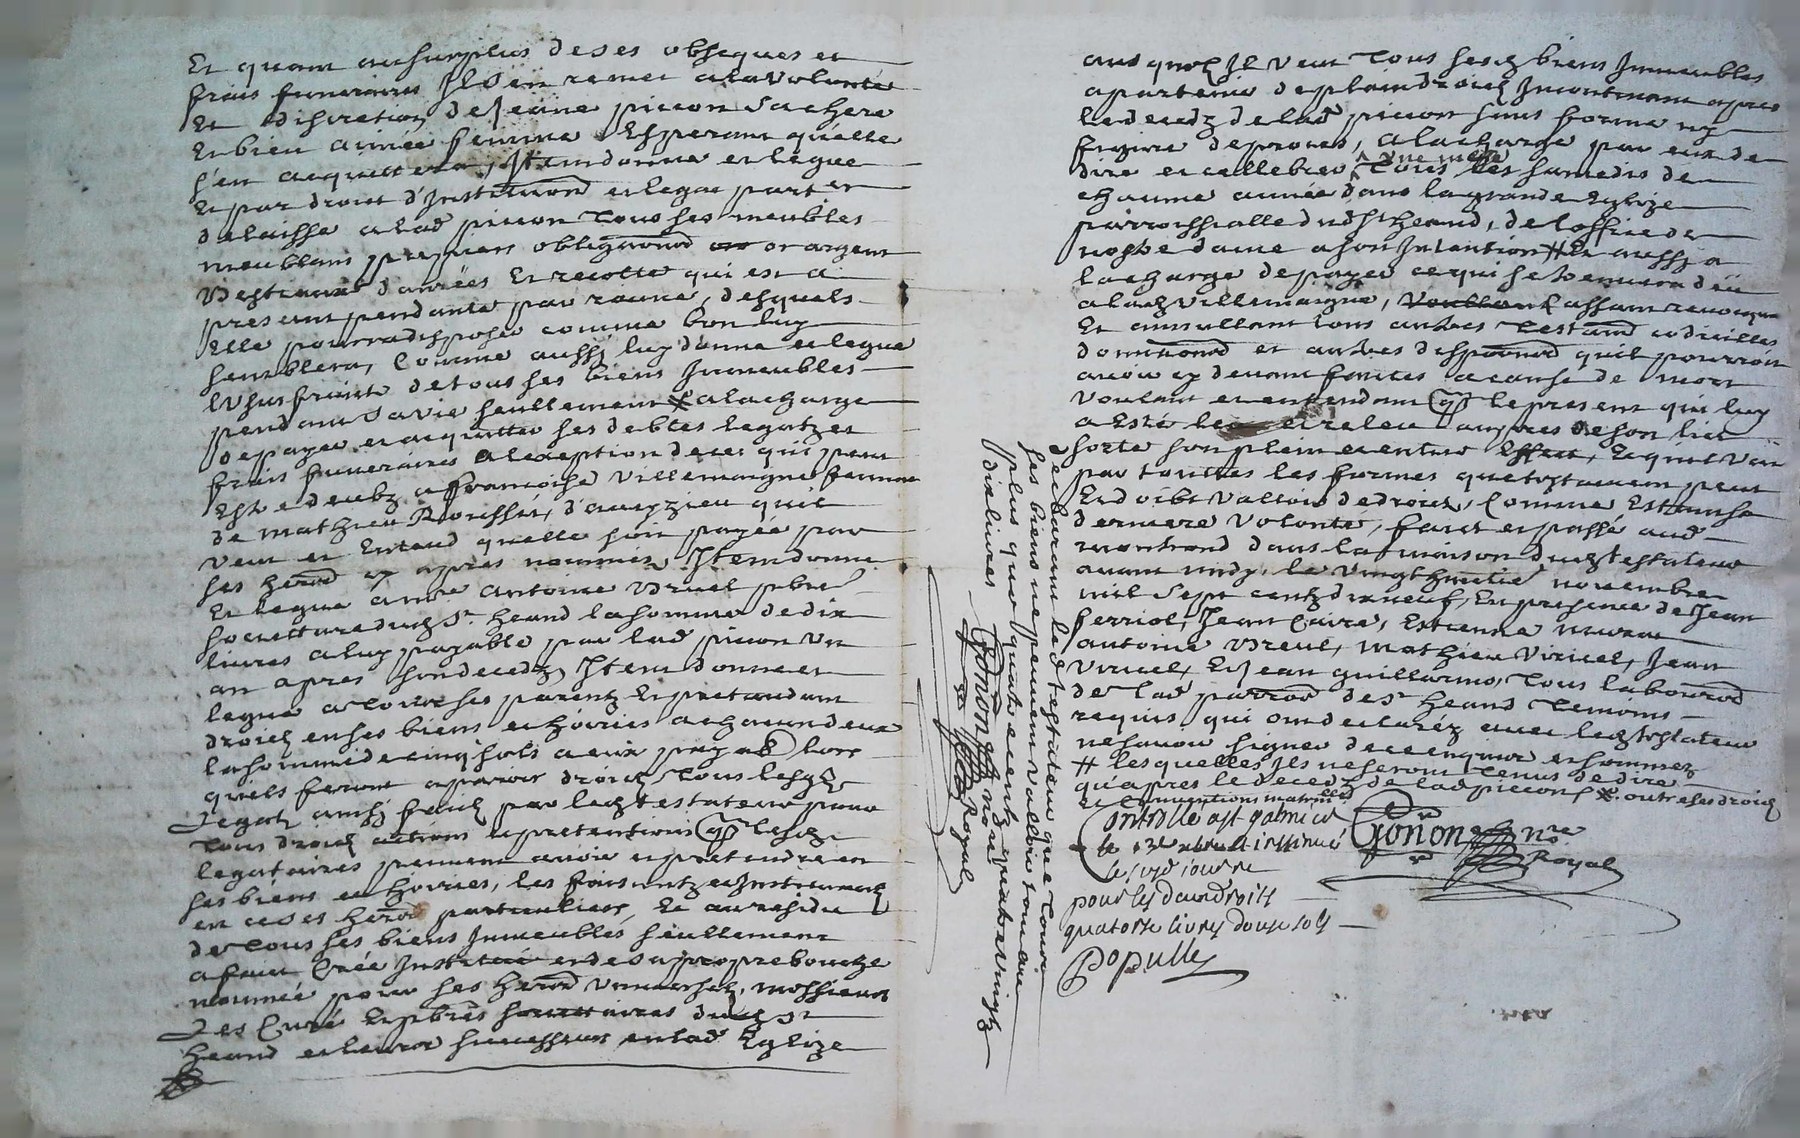 Et quant au surplus de ses obseques et
frais funeraires Il s'en remet a la volonté
Et discretion de Jeanne picon sa chere
Et bien aimée femme Esperant qu'elle
s'en acquittera, Item donne et legue
Et par droit d'Institu͠on et legat part et
delaisse a lad picon tous ses meubles
meublans, obliga͠ons or argent
danrées Et recolte qui est a
present pendante par racine, desquels
Elle pourra disposer comme bon luy
semblera, Comme aussy luy donne et legue
l'usufruict de tous ses biens Immeubles
pendant sa vie seullement # a la charge
de payer et acquitter ses debtes legatz et
frais funeraires a l'exeption de ce qui peut
Estre deubz a francoise Villemaigne femme
de mathieu d'aveyzieu qu'il
veut et Entend quelle soit payée par
ses her͠s cy apres nommés, Item donne
Et legue a m͠re antoine Vruel pb͠re
societtaire dud St heand la somme de dix
livres a luy payable par lad picon un
an apres son decedz, Item donne et
legue a tous ses parentz Et pretandant
droict en ses biens et hoiries a chacun deux
la somme de cinq sols a eux payab lors
quels feront aparoir droict, tous lesq͠lz
Legatz ainsy faicts par led testateur pour
tous droictz actions et pretentions q͠ lesd
legataires peuvent avoir et pretendre en
ses biens et hoiries, les faisantz et Instituant
en ce ses her͠s particuliers, Et au residu
de tous ses biens Immeubles seullement
a faict Créé Institué et de sa propre bouche
nommé pour ses her͠s universelz, messieurs
Les Curé Et pb͠res societtaires dud St
heand et leurs successeurs en lad Eglize
aus quelz Il veut tous sesd biens Immeubles
apartenir de plain droict Incontinant apres
le decedz de lad picon sans forme ny
figure de proces, a la charge par eux de
une messe
dire et cellebrer tous les samedis de
chacune année dans la grande Eglize
parroissialle dud St heand, de l'office de
nostre dame a son Intantion # Et aussy a
la charge de payer ce qui se trouvera deü
a lad Villemaigne, cassant revocquant
Et annullant tous autres testam͠s codicilles
dona͠ons et autres disposi͠ons quil pourroit
avoir cy devant faictes a cause de mort
voulant et entendant q͠ le present qui luy
a esté leu et releu aupres de son lict
sorte son plein et entier Effect, Et quil vaille
par touttes les formes que testament peut
Et doibt valloir de droict, Comme Estant sa
derniere volonté, faict et passé aud
montrond dans la maison dud testateur
avant midy, le vingthuictie͠ novembre
mil sept centz dix neuf, En presence de Jean
ferriol, Jean Caire, Estienne
antoine Vreul, mathieu Viricel, Jean
Viricel, Et Jean guillermo, tous laboureurs
de lad parro͠e de St heand temoins
requis qui ont declarez avec led testateur
ne savoir signer de ce enquis et sommez
# lesquelles Ils ne seront tenus de dire
qu'apres le decedz de lad picon # outre ses droictz
et conventions matri͠lles
Controllé a st galmier
le 12e xbre et insinué
le jour
pour les deux droits
quatorse livres douse sols
Populle
Gonon nre
Royal
declarant led testateur que tous
ses biens ne peuvent valloir tout au
plus que quatre centz quatre vingtz
dix livres
Gonon nore
Royal